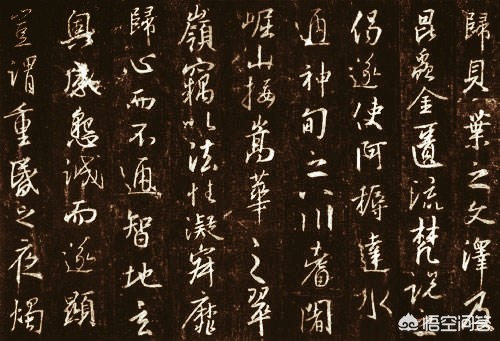 歸貝葉之文澤及
昆蟲金匱流梵說之
偈遂使阿耨達水
通神甸之八川耆闍
崛山接嵩華之翠
嶺竊以法性凝寂靡
歸心而不通智地玄
奧感懇誠而遂顯
豈謂重昏之夜燭
悟空问答